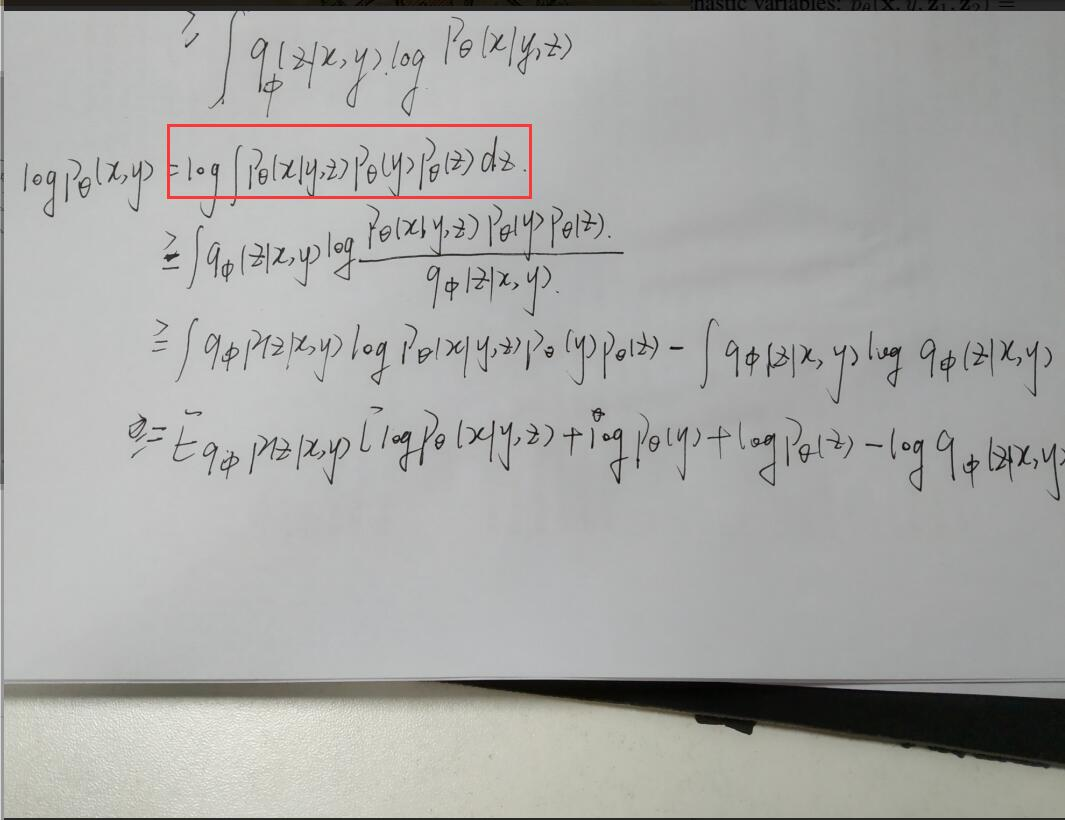 nastic variables: pθ(x, y, z₁, z₂) =
≥ ∫ qφ(z|x,y) log Pθ(x|y,z)
log Pθ(x,y) = log ∫ Pθ(x|y,z) Pθ(y) Pθ(z) dz.
≥ ∫ qφ(z|x,y) log Pθ(x|y,z) Pθ(y) Pθ(z).
qφ(z|x,y).
≥ ∫ qφ(z|x,y) log Pθ(x|y,z) Pθ(y) Pθ(z) - ∫ qφ(z|x,y) log qφ(z|x,y)
= E qφ(z|x,y) [log Pθ(x|y,z) + log Pθ(y) + log Pθ(z) - log qφ(z|x,y)